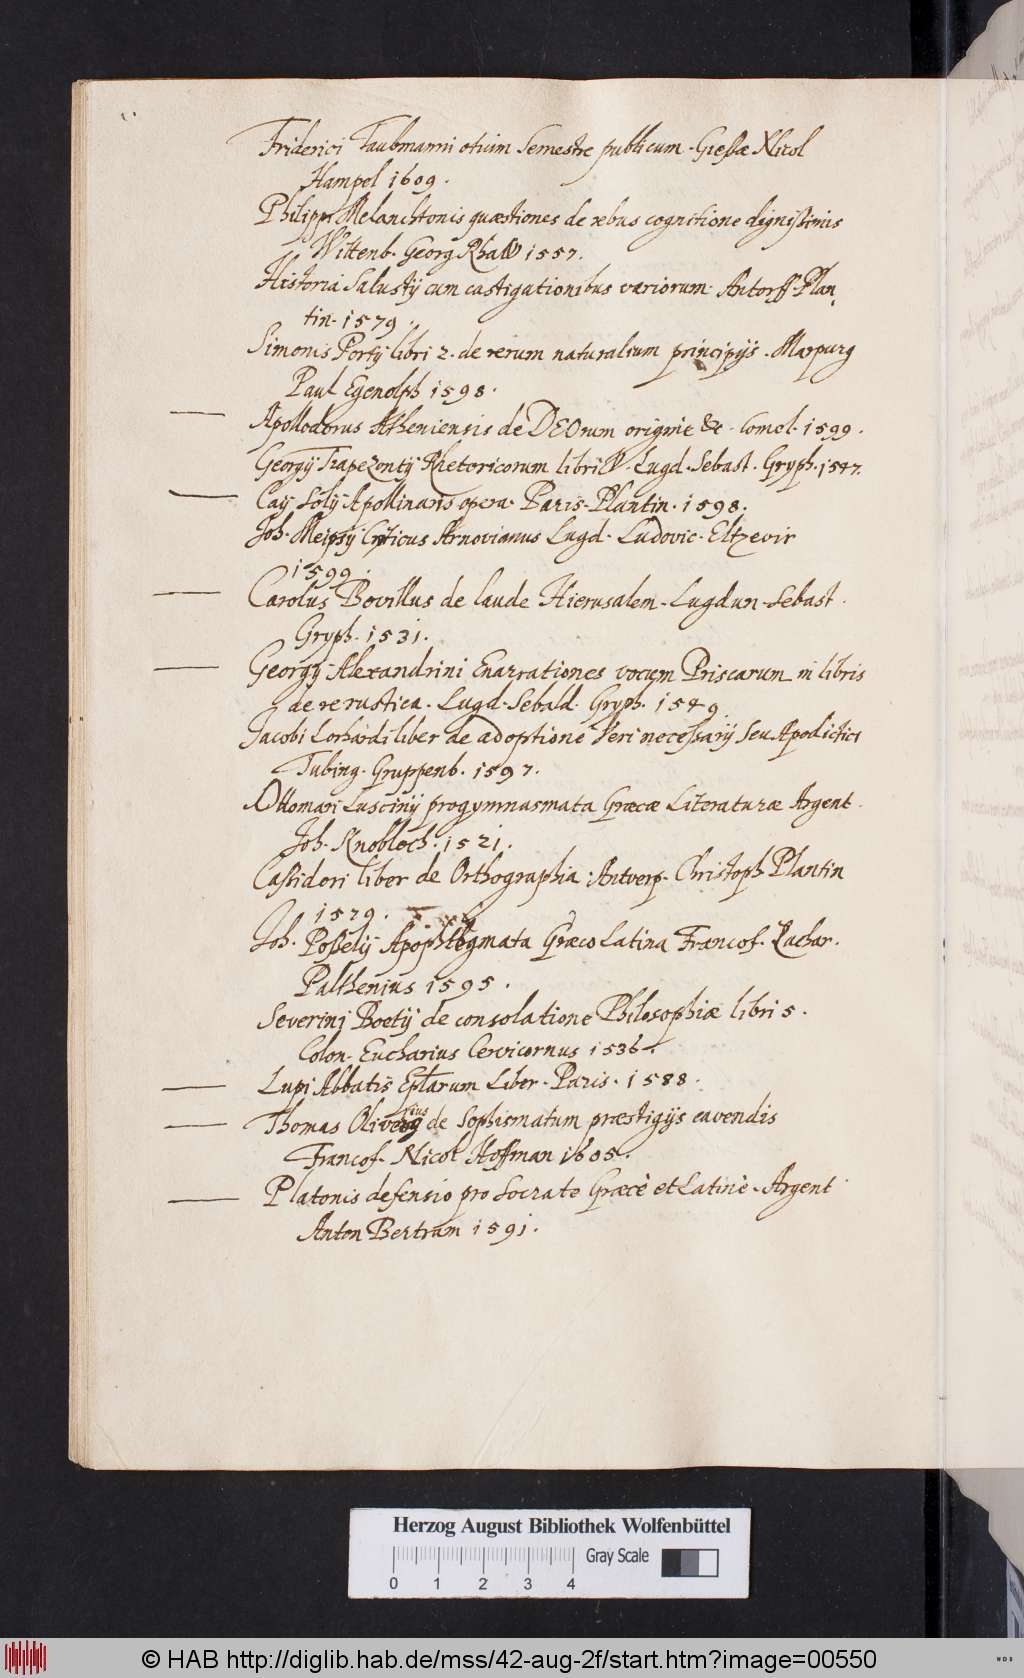 Friderici Taubmanni otium Semestre publicum. Gießæ Nicol
Hampel 1609.
Philippi Melanchtonis quæstiones de rebus cognitione dignißimis
Wittenb. Georg Rhaw 1557.
Historia Salustÿ cum castigationibus variorum. Antorff Plan
tin. 1579.
Simonis Portÿ libri 2. de rerum naturalium principÿs. Marpurg
Paul Egenolph 1598.
Apollodorus Atheniensis de DEOrum origine &c. Comel. 1599.
Georgÿ Trapezontÿ Rhetoricorum libri V. Lugd. Sebast. Gryph. 1547.
Caÿ Solÿ Apollinaris opera. Paris. Plantin. 1598.
Joh. Meipsÿ Criticus Arnovianus Lugd. Ludovic. Eltzevir
1599.
Carolus Bovillus de laude Hierusalem. Lugdun. Sebast.
Gryph. 1531.
Georgÿ Alexandrini Enarrationes vocum Priscarum in libris
de re rustica. Lugd. Sebald. Gryph. 1549.
Jacobi Lorhardi liber de adoptione Veri necessarÿ seu Apodictici
Tubing. Gruppenb. 1597.
Ottomari Luscinÿ progymnasmata Græcæ Literaturæ Argent.
Joh. Knobloch. 1521.
Caßidori liber de Orthographia. Antverp. Christoph Plantin
1579.
Joh. Posselÿ Apophtegmata Græco Latina Francof. Zachar.
Palthenius 1595.
Severini Boetÿ de consolatione Philosophiæ libri 5.
Colon. Eucharius Cervicornus 1536.
Lupi Abbatis Eplarum Liber. Paris. 1588.
Thomas Oliverius de Sophismatum præstigÿs cavendis
Francof. Nicol Hoffman 1605.
Platonis defensio pro Socrate Græcè et Latinè. Argent.
Anton Bertram 1591.
Herzog August Bibliothek Wolfenbüttel
Gray Scale
0 1 2 3 4
© HAB http://diglib.hab.de/mss/42-aug-2f/start.htm?image=00550